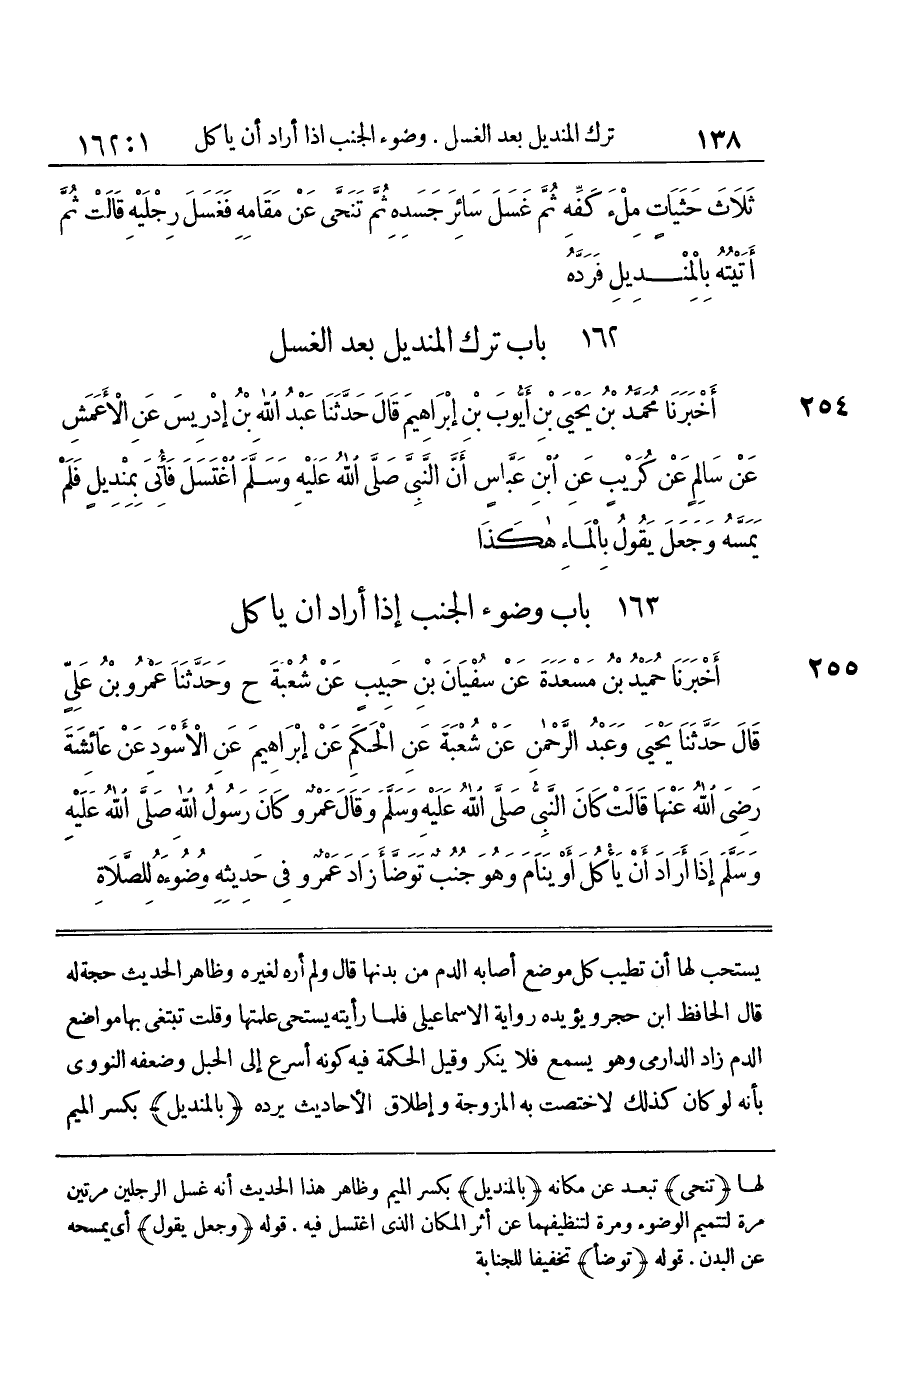 ١٣٨ ترك المنديل بعد الغسل . وضوء الجنب اذا أراد أن ياكل ١٦٢:١
ثَلَاثَ حَثَيَاتٍ مِلْءَ كَفِّهِ ثُمَّ غَسَلَ سَائِرَ جَسَدِهِ ثُمَّ تَنَحَّى عَنْ مَقَامِهِ فَغَسَلَ رِجْلَيْهِ قَالَتْ ثُمَّ
أَتَيْتُهُ بِالْمِنْدِيلِ فَرَدَّهُ
١٦٢ باب ترك المنديل بعد الغسل
٢٥٤ أَخْبَرَنَا مُحَمَّدُ بْنُ يَحْيَى بْنِ أَيُّوبَ بْنِ إِبْرَاهِيمَ قَالَ حَدَّثَنَا عَبْدُ اللهِ بْنُ إِدْرِيسَ عَنِ الْأَعْمَشِ
عَنْ سَالِمٍ عَنْ كُرَيْبٍ عَنِ ابْنِ عَبَّاسٍ أَنَّ النَّبِيَّ صَلَّى اللهُ عَلَيْهِ وَسَلَّمَ اغْتَسَلَ فَأُتِىَ بِمِنْدِيلٍ فَلَمْ
يَمَسَّهُ وَجَعَلَ يَقُولُ بِالْمَاءِ هٰكَذَا
١٦٣ باب وضوء الجنب إذا أراد ان ياكل
٢٥٥ أَخْبَرَنَا حُمَيْدُ بْنُ مَسْعَدَةَ عَنْ سُفْيَانَ بْنِ حَبِيبٍ عَنْ شُعْبَةَ ح وَحَدَّثَنَا عَمْرُو بْنُ عَلِىٍّ
قَالَ حَدَّثَنَا يَحْيَى وَعَبْدُ الرَّحْمٰنِ عَنْ شُعْبَةَ عَنِ الْحَكَمِ عَنْ إِبْرَاهِيمَ عَنِ الْأَسْوَدِ عَنْ عَائِشَةَ
رَضِىَ اللهُ عَنْهَا قَالَتْ كَانَ النَّبِىُّ صَلَّى اللهُ عَلَيْهِ وَسَلَّمَ وَقَالَ عَمْرٌو كَانَ رَسُولُ اللهِ صَلَّى اللهُ عَلَيْهِ
وَسَلَّمَ إِذَا أَرَادَ أَنْ يَأْكُلَ أَوْ يَنَامَ وَهُوَ جُنُبٌ تَوَضَّأَ زَادَ عَمْرٌو فِى حَدِيثِهِ وُضُوءَهُ لِلصَّلَاةِ
يستحب لها أن تطيب كل موضع أصابه الدم من بدنها قال ولم أره لغيره وظاهر الحديث حجة له
قال الحافظ ابن حجر ويؤيده رواية الاسماعيلى فلما رأيته يستحى علمتها وقلت تبتغى بها مواضع
الدم زاد الدارمى وهو يسمع فلا ينكر وقيل الحكمة فيه كونه أسرع إلى الحبل وضعفه النووى
بأنه لو كان كذلك لاختصت به المزوجة وإطلاق الأحاديث يرده ﴿بالمنديل﴾ بكسر الميم
لها ﴿تنحى﴾ تبعد عن مكانه ﴿بالمنديل﴾ بكسر الميم وظاهر هذا الحديث أنه غسل الرجلين مرتين
مرة لتتميم الوضوء ومرة لتنظيفهما عن أثر المكان الذى اغتسل فيه . قوله ﴿وجعل يقول﴾ أى يمسحه
عن البدن . قوله ﴿توضأ﴾ تخفيفا للجنابة